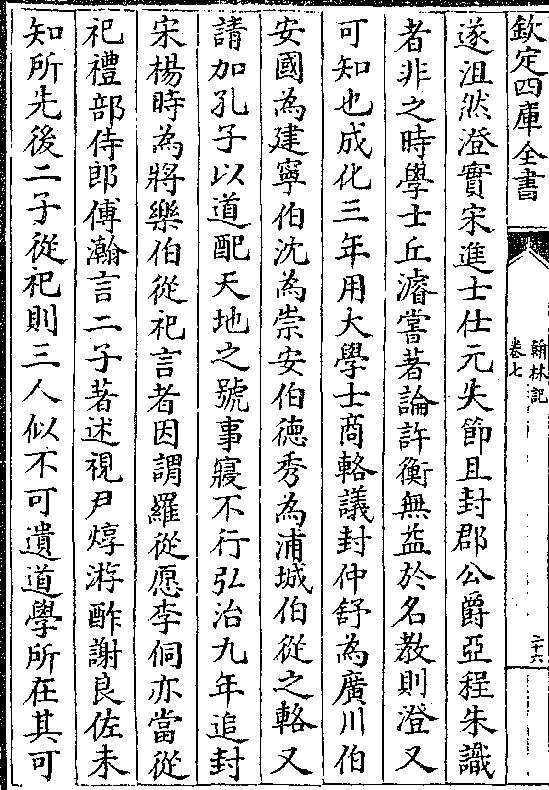 欽定四庫全書
翰林記
卷七
二十六
遂沮然澄實宋進士仕元失節且封郡公爵亞程朱識
者非之時學士丘濬嘗著論許衡無益於名教則澄又
可知也成化三年用大學士商輅議封仲舒為廣川伯
安國為建寧伯沈為崇安伯德秀為浦城伯從之輅又
請加孔子以道配天地之號事寢不行弘治九年追封
宋楊時為將樂伯從祀言者因謂羅從愿李侗亦當從
祀禮部侍郎傅瀚言二子著述視尹焞游酢謝良佐未
知所先後二子從祀則三人似不可遺道學所在其可